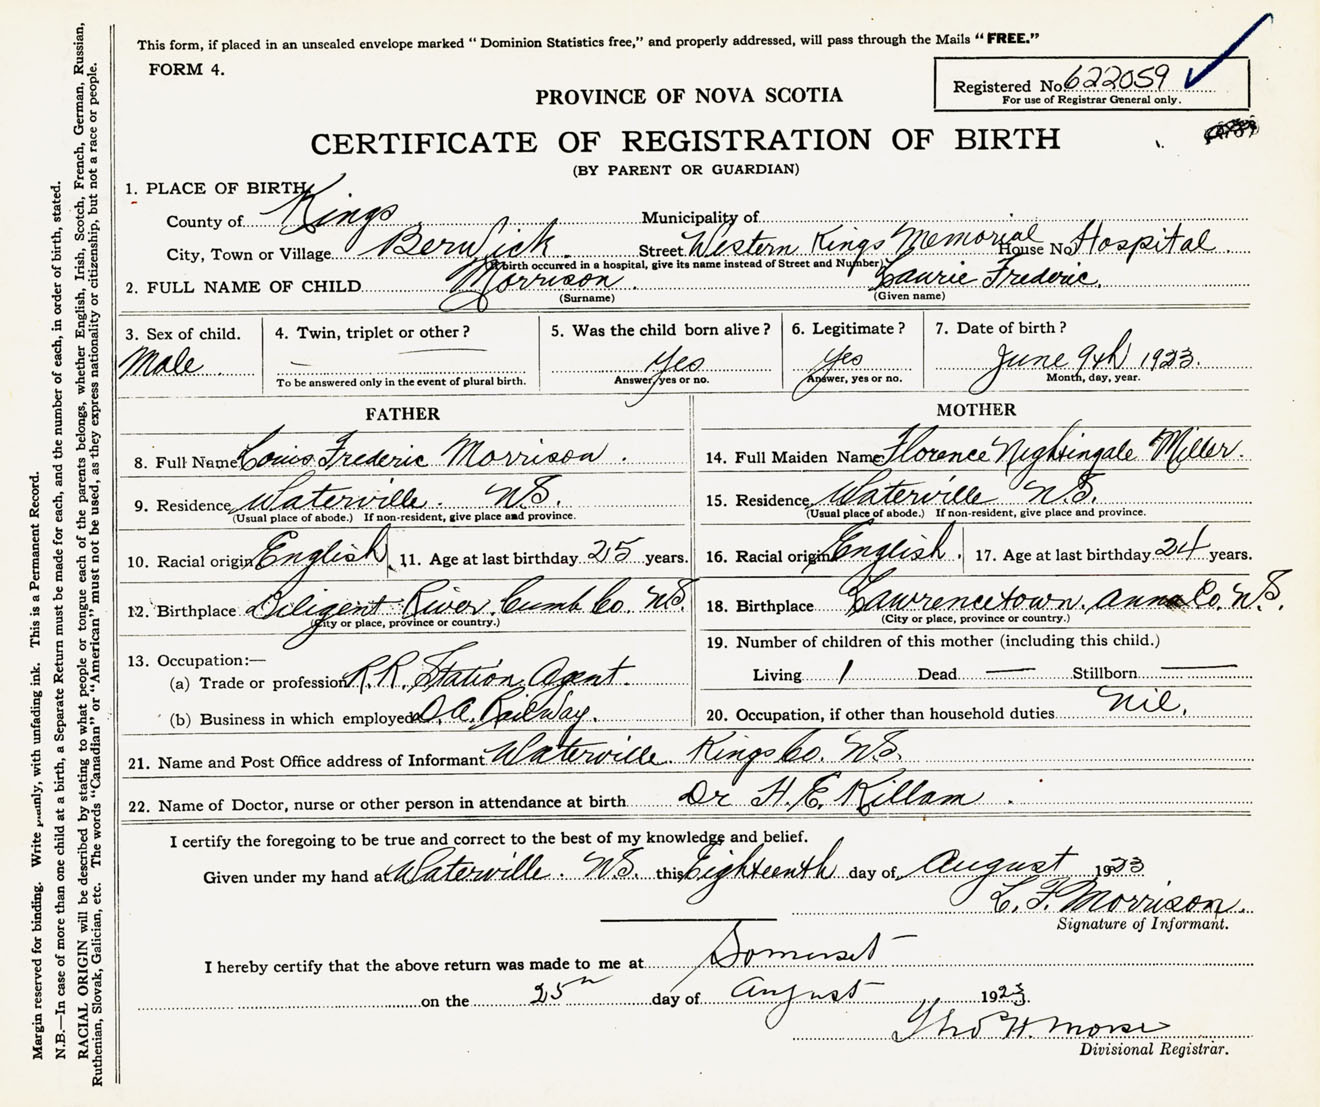 This form, if placed in an unsealed envelope marked "Dominion Statistics free," and properly addressed, will pass through the Mails "FREE."
FORM 4.
Registered No. 622059
For use of Registrar General only.
PROVINCE OF NOVA SCOTIA
CERTIFICATE OF REGISTRATION OF BIRTH
(BY PARENT OR GUARDIAN)
1. PLACE OF BIRTH
County of Kings Municipality of
City, Town or Village Berwick. Street Western Kings Memorial House No. Hospital
(If birth occurred in a hospital, give its name instead of Street and Number)
2. FULL NAME OF CHILD Morrison. Laurie Frederic.
(Surname) (Given name)
3. Sex of child. 4. Twin, triplet or other? 5. Was the child born alive? 6. Legitimate? 7. Date of birth?
Male — Yes Yes June 9th 1923.
To be answered only in the event of plural birth. Answer, yes or no. Answer, yes or no. Month, day, year.
FATHER
8. Full Name Louis Frederic Morrison.
9. Residence Waterville. N.S.
(Usual place of abode.) If non-resident, give place and province.
10. Racial origin English 11. Age at last birthday 25 years.
12. Birthplace Diligent River. Cumb Co. N.S.
(City or place, province or country.)
13. Occupation:—
(a) Trade or profession R.R. Station Agent.
(b) Business in which employed D.A. Railway.
MOTHER
14. Full Maiden Name Florence Nightingale Miller.
15. Residence Waterville N.S.
(Usual place of abode.) If non-resident, give place and province.
16. Racial origin English. 17. Age at last birthday 24 years.
18. Birthplace Lawrencetown, Anna Co. N.S.
(City or place, province or country.)
19. Number of children of this mother (including this child.)
Living 1 Dead — Stillborn —
20. Occupation, if other than household duties Nil.
21. Name and Post Office address of Informant Waterville. Kings Co. N.S.
22. Name of Doctor, nurse or other person in attendance at birth Dr H. E. Killam.
I certify the foregoing to be true and correct to the best of my knowledge and belief.
Given under my hand at Waterville. N.S. this Eighteenth day of August 1923
L. F. Morrison.
Signature of Informant.
I hereby certify that the above return was made to me at Somerset
on the 25th day of August 1923.
Thos H. Morse
Divisional Registrar.
Margin reserved for binding. Write plainly, with unfading ink. This is a Permanent Record.
N.B.—In case of more than one child at a birth, a Separate Return must be made for each, and the number of each, in order of birth, stated.
RACIAL ORIGIN will be described by stating to what people or tongue each of the parents belongs, whether English, Irish, Scotch, French, German, Russian,
Ruthenian, Slovak, Galician, etc. The words "Canadian" or "American" must not be used, as they express nationality or citizenship, but not a race or people.